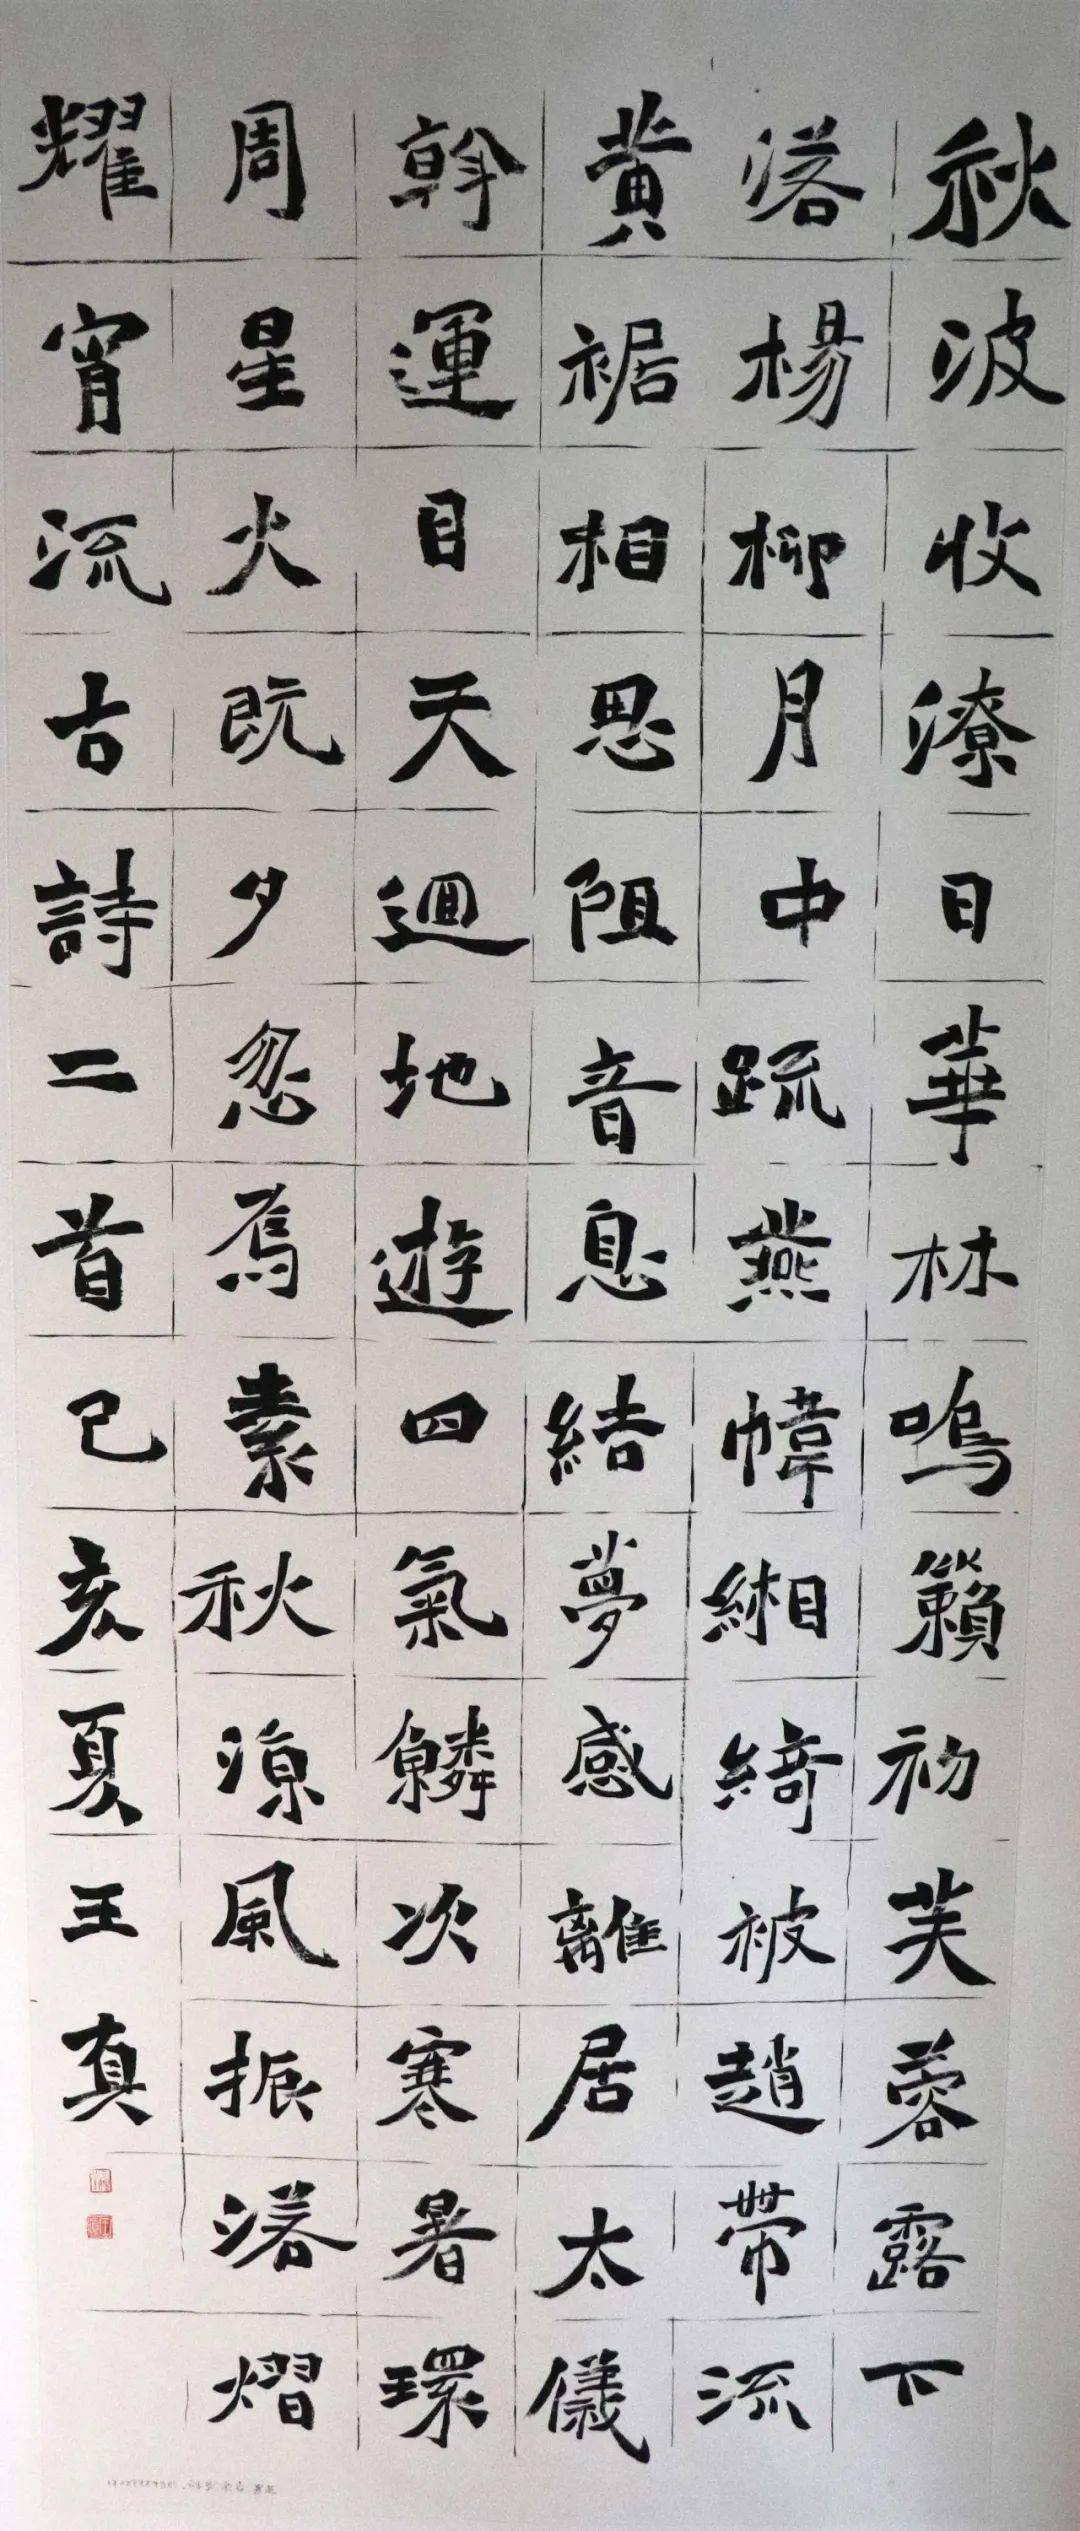 秋波收潦日華林鳴籟初芙蓉露下
落楊柳月中疏燕幃緗綺被趙帶流
黃裾相思阻音息結夢感離居太儀
斡運目天迴地遊四氣鱗次寒暑環
周星火既夕忽焉素秋涼風振落熠
耀宵流古詩二首己亥夏王真